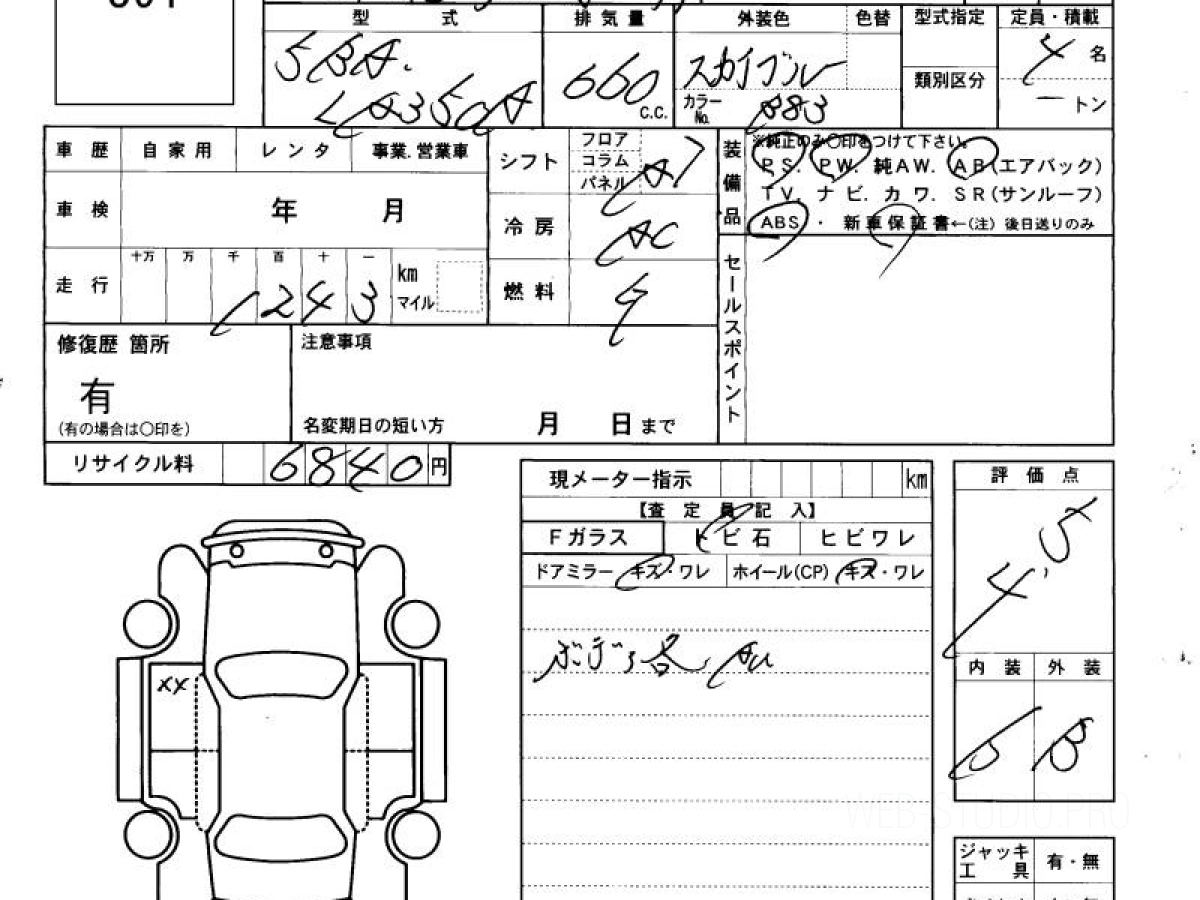 型 式 排 気 量 外装色 色替 型式指定 定員・積載
5BA.
LA350A
660 c.c.
スカイブルー
カラーNo. B83
類別区分
4 名
ー トン
車 歴 自 家 用 レ ン タ 事業.営業車
シフト フロア コラム パネル AT
装備品
※純正のみ〇印をつけて下さい。
P S. P W. 純A W. A B(エアバック)
T V. ナ ビ. カ ワ. S R(サンルーフ)
A B S ・ 新 車 保 証 書←(注) 後日送りのみ
車 検 年 月
冷 房 AC
走 行 十万 万 千 百 十 一
1243 km マイル
燃 料
セールスポイント
修復歴 箇所
有
(有の場合は〇印を)
注意事項
名変期日の短い方 月 日まで
リサイクル料 6840 円
現メーター指示 km
【査 定 員 記 入】
Fガラス ト ビ 石 ヒ ビ ワ レ
ドアミラー キズ・ワレ ホイール(CP) キズ・ワレ
評 価 点
4.5
XX
内 装 外 装
B B
ジャッキ 有・無
工 具
WEB-STUDIO.PRO